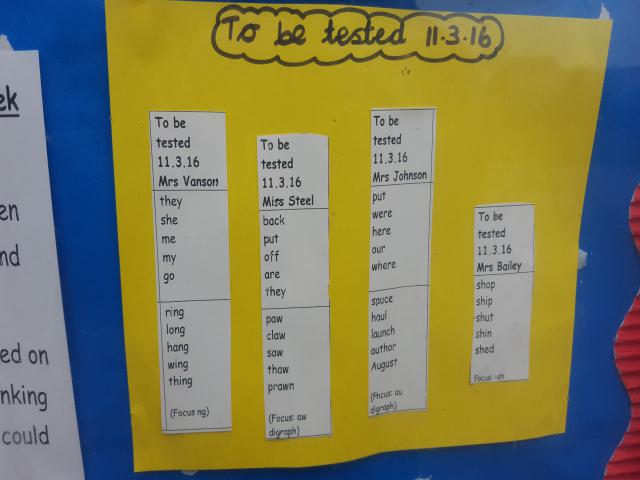 To be tested 11.3.16
To be
tested
11.3.16
Mrs Vanson
they
she
me
my
go
ring
long
hang
wing
thing
(Focus ng)
To be
tested
11.3.16
Miss Steel
back
put
off
are
they
paw
claw
saw
thaw
prawn
(Focus: aw
digraph)
To be
tested
11.3.16
Mrs Johnson
put
were
here
our
where
sauce
haul
launch
author
August
(Focus: au
digraph)
To be
tested
11.3.16
Mrs Bailey
shop
ship
shut
shin
shed
Focus: -sh
ek
en
nd
ed on
nking
could